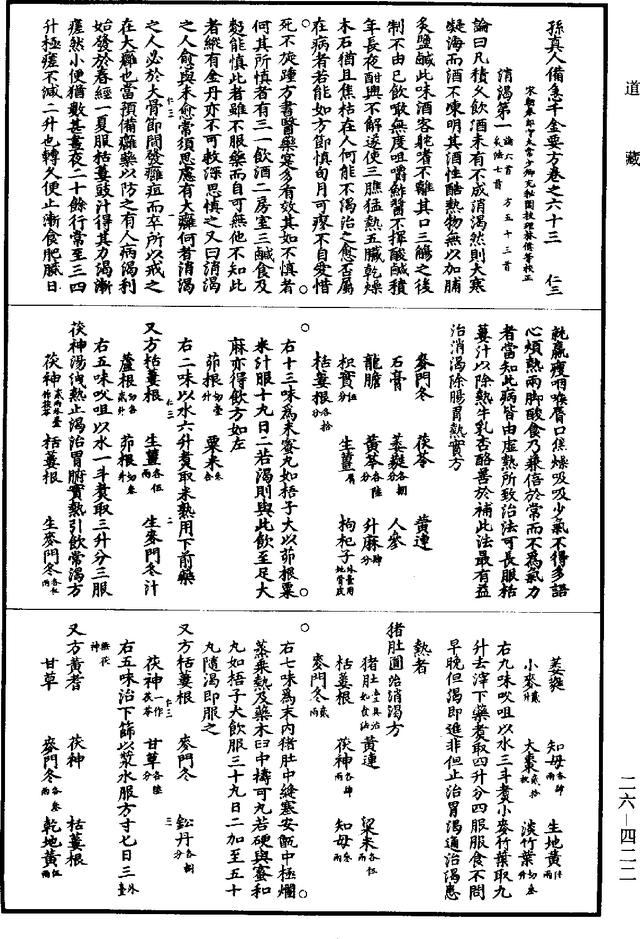 道藏
孫真人備急千金要方卷之六十三 仁三
宋朝奉郎守太常少卿充秘閣校理林億等校正
消渴第一 論六首 方五十三首 灸法七首
論曰凡積久飲酒未有不成消渴然則大寒
凝海而酒不凍明其酒性酷熱物無以加脯
炙鹽鹹此味酒客躭嗜不離其口三觴之後
制不由己飲噉無度咀嚼鮓醬不擇酸鹹積
年長夜酣興不解遂使三膲猛熱五臟乾燥
木石猶且焦枯在人何能不渴治之愈否屬
在病者若能如方節慎旬月可瘳不自愛惜
死不旋踵方書醫藥實多有效其如不慎者
何其所慎者有三一飲酒二房室三鹹食及
麪能慎此者雖不服藥而自可無他不知此
者縱有金丹亦不可救深思慎之又曰消渴
之人愈與未愈常須思慮有大癰何者消渴
之人必於大骨節間發癰疽而卒所以戒之
在大癰也當預備癰藥以防之有人病渴利
始發於春經一夏服栝蔞豉汁得其力渴漸
瘥然小便猶數甚晝夜二十餘行常至三四
升極瘥不減二升也轉久便止漸食肥膩日
就羸瘦咽喉脣口焦燥吸吸少氣不得多語
心煩熱兩脚酸食乃兼倍於常而不為氣力
者當知此病皆由虛熱所致治法可長服栝
蔞汁以除熱牛乳杏酪善於補此法最有益
治消渴除腸胃熱實方
麥門冬 茯苓 黃連
石膏 萎蕤各捌分 人參
龍膽 黃芩各陸分 升麻肆分
枳實伍分 生薑屑 枸杞子外臺用地骨皮
栝蔞根各拾分
右十三味為末蜜丸如梧子大以茆根粟
米汁服十九日二若渴則與此飲至足大
麻亦得飲方如左
茆根切壹升 粟米叁合
右二味以水六升煮取米熟用下前藥
又方栝蔞根 生薑各伍兩 生麥門冬汁
蘆根切各貳升 茆根切叁升
右五味㕮咀以水一斗煮取三升分三服
茯神湯洩熱止渴治胃腑實熱引飲常渴方
茯神貳兩外臺作茯苓 栝蔞根 生麥門冬各伍兩
萎蕤 知母各肆兩 生地黃陸兩
小麥貳升 大棗貳拾枚 淡竹葉切叁升
右九味㕮咀以水三斗煮小麥竹葉取九
升去滓下藥煮取四升分四服服食不問
早晚但渴即進非但止治胃渴通治渴患
熱者
猪肚圓治消渴方
猪肚壹具治如食法 黃連 粱米各伍兩
栝蔞根 茯神各肆兩 知母叁兩
麥門冬貳兩
右七味為末內猪肚中縫塞安甑中極爛
蒸乘熱及藥木臼中擣可丸若硬與蜜和
丸如梧子大飲服三十九日二加至五十
丸隨渴即服之
又方栝蔞根 麥門冬 鈆丹各捌分
茯神一作茯苓 甘草各陸分
右五味治下篩以漿水服方寸七日三外臺無茯神
又方黃耆 茯神 栝蔞根
甘草 麥門冬各叁兩 乾地黃伍兩
二六—四二二